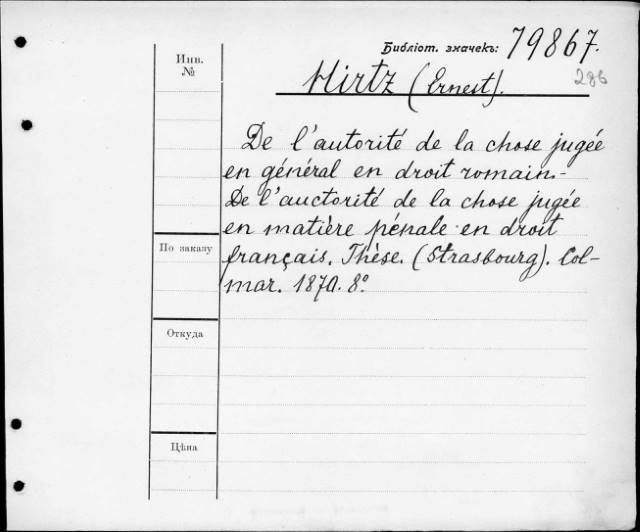 Библіот. значекъ: 79867.
Инв.
№
286
Hirtz (Ernest).
De l'autorité de la chose jugée
en général en droit romain.-
De l'auctorité de la chose jugée
en matière pénale en droit
По заказу
français. Thèse. (Strasbourg). Col-
mar. 1870. 8°.
Откуда
Цѣна